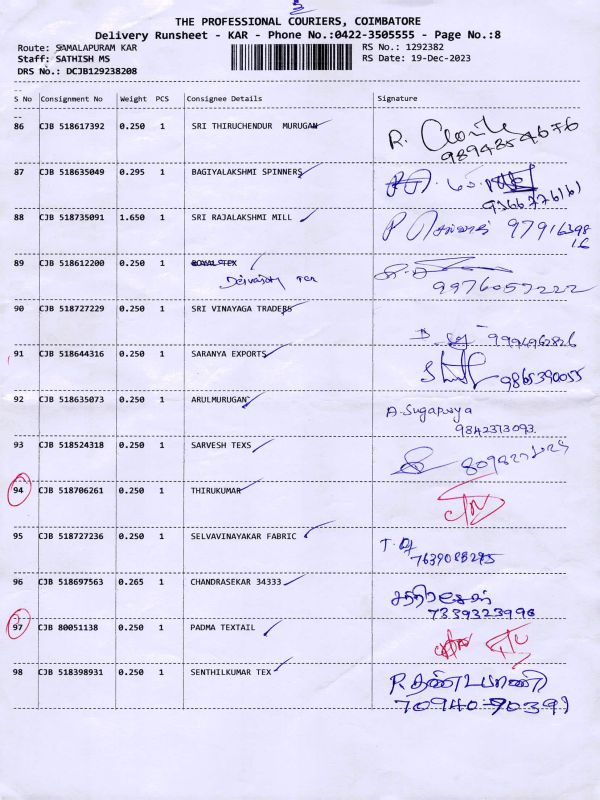 THE PROFESSIONAL COURIERS, COIMBATORE
Delivery Runsheet - KAR - Phone No.:0422-3505555 - Page No.:8
Route: SAMALAPURAM KAR
RS No.: 1292382
Staff: SATHISH MS
RS Date: 19-Dec-2023
DRS No.: DCJB129238208
S No Consignment No Weight PCS Consignee Details Signature
86 CJB 518617392 0.250 1 SRI THIRUCHENDUR MURUGAN
R.
9894354676
87 CJB 518635049 0.295 1 BAGIYALAKSHMI SPINNERS
88 CJB 518735091 1.650 1 SRI RAJALAKSHMI MILL
89 CJB 518612200 0.250 1 ROYAL TEX
9976057222
90 CJB 518727229 0.250 1 SRI VINAYAGA TRADERS
91 CJB 518644316 0.250 1 SARANYA EXPORTS
9865390055
92 CJB 518635073 0.250 1 ARULMURUGAN
A. Sugapriya
9842373093.
93 CJB 518524318 0.250 1 SARVESH TEXS
94 CJB 518706261 0.250 1 THIRUKUMAR
95 CJB 518727236 0.250 1 SELVAVINAYAKAR FABRIC
96 CJB 518697563 0.265 1 CHANDRASEKAR 34333
7339323996
97 CJB 80051138 0.250 1 PADMA TEXTAIL
98 CJB 518398931 0.250 1 SENTHILKUMAR TEX
P. தண்டபாணி
70940-90391